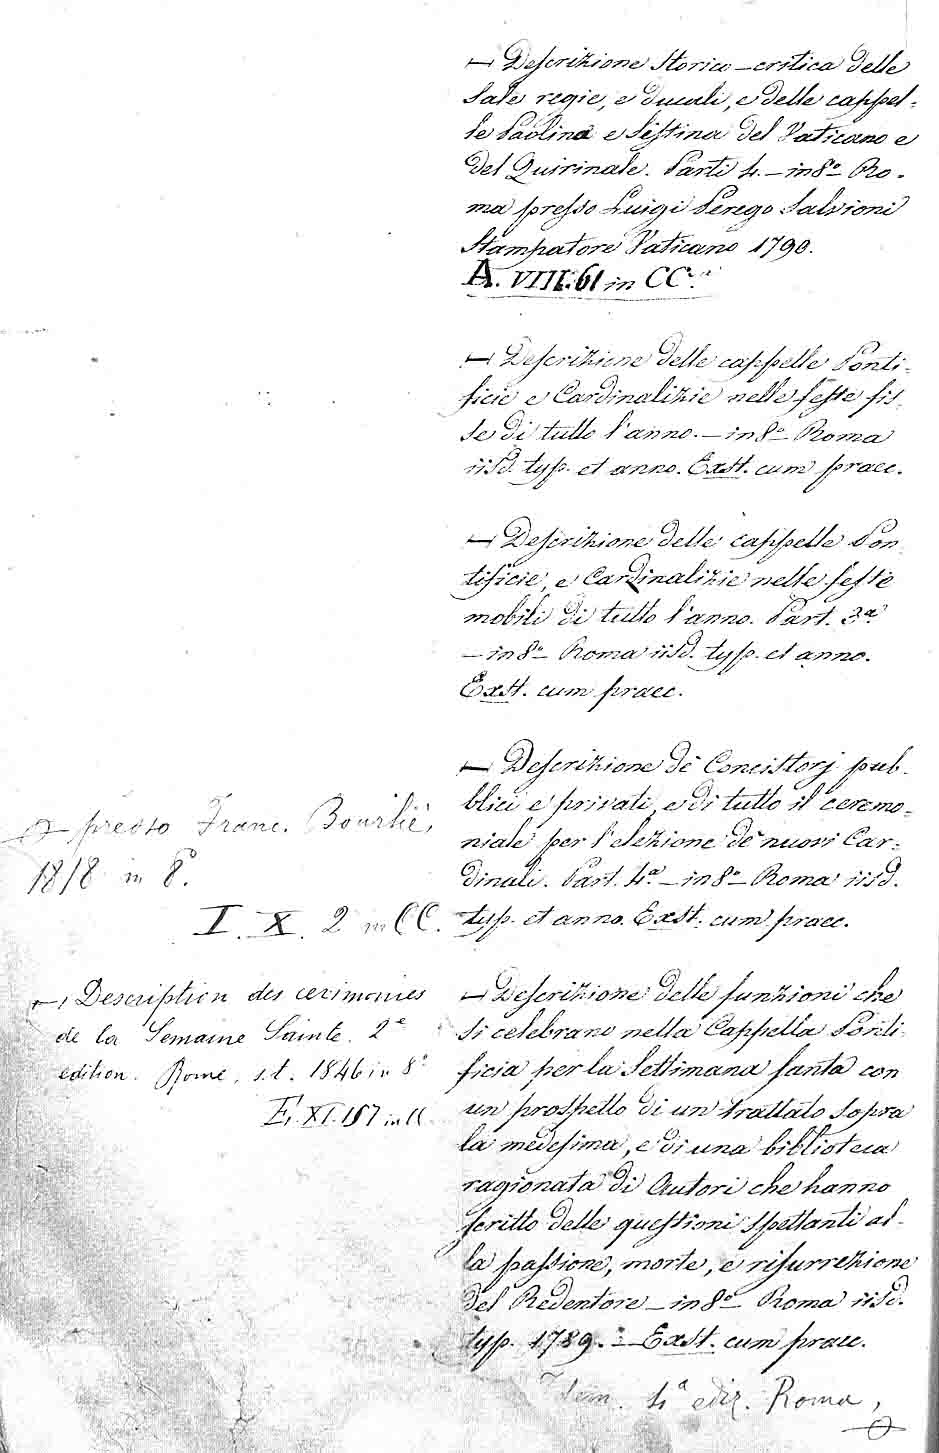 — Descrizione storico-critica delle
Sale regie, e ducali, e delle cappel-
le Paolina e Sistina del Vaticano e
del Quirinale. Parti 4. — in 8º Ro-
ma presso Luigi Perego Salvioni
Stampatore Vaticano 1790.
A. VIII. 61 in CC.
— Descrizione delle cappelle Ponti-
ficie e Cardinalizie nelle feste fis-
se di tutto l'anno. — in 8º Roma
iisd. typ. et anno. Exst. cum praec.
— Descrizione delle cappelle Pon-
tificie, e Cardinalizie nelle feste
mobili di tutto l'anno. Part. 3ª
— in 8º Roma iisd. typ. et anno.
Exst. cum praec.
— Descrizione de' Concistorj pub-
blici e privati, e di tutto il ceremo-
niale per l'elezione de' nuovi Car-
dinali. Part. 4ª — in 8º Roma iisd.
typ. et anno. Exst. cum praec.
— Descrizione delle funzioni che
si celebrano nella Cappella Ponti-
ficia per la Settimana santa con
un prospetto di un trattato sopra
la medesima, e di una biblioteca
ragionata di Autori che hanno
scritto delle questioni spettanti al-
la passione, morte, e risurrezione
del Redentore — in 8º Roma iisd.
typ. 1789. — Exst. cum praec.
Item. 4ª ediz. Roma,
presso Franc. Bourlié,
1818 in 8º.
I. X. 2 in CC.
— Description des cérimonies
de la Semaine Sainte. 2e
edition. Rome, s.t. 1846 in 8º
E. XI. 157 in CC